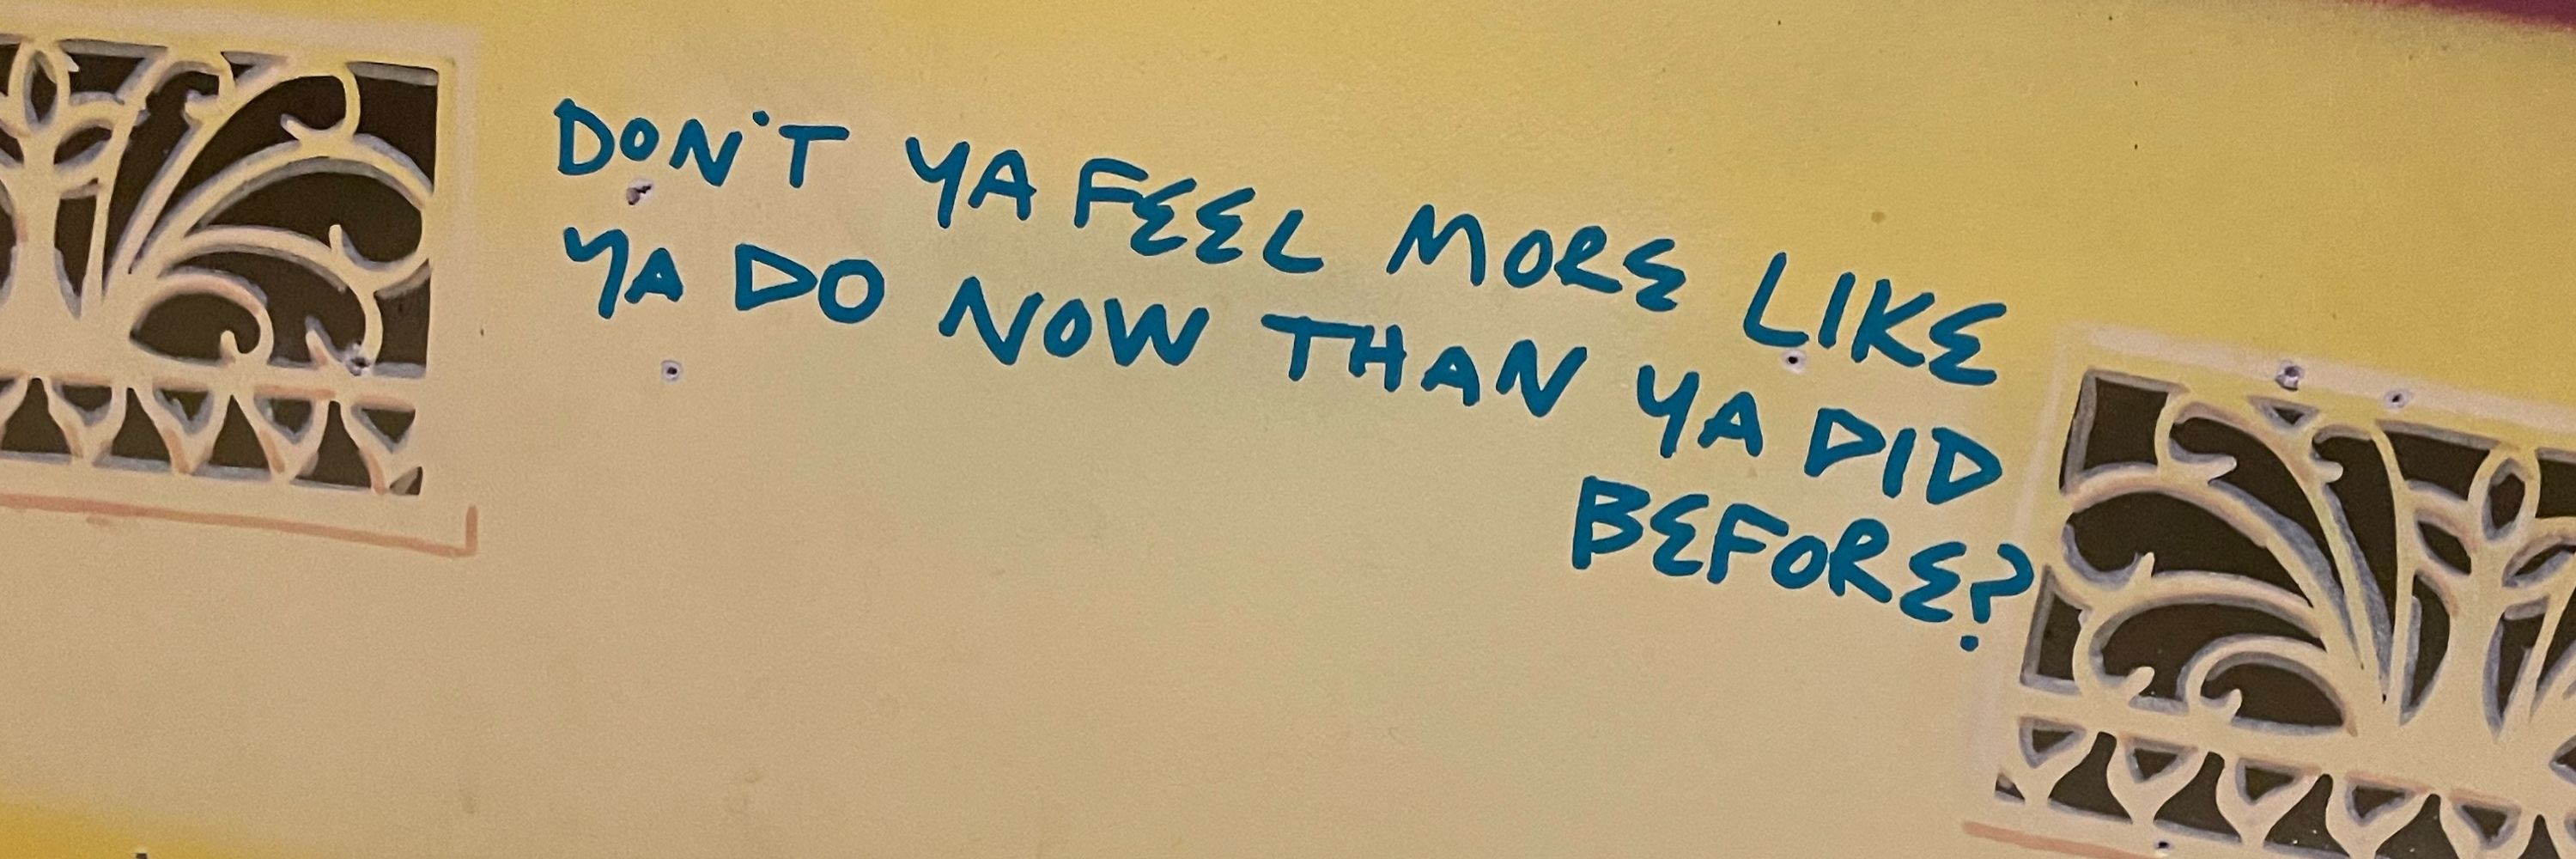 DON'T YA FEEL MORE LIKE
YA DO NOW THAN YA DID
BEFORE?